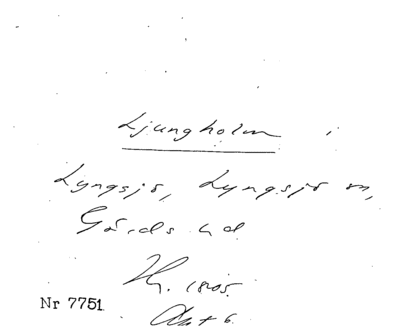 Ljungholm i
Lyngsjö, Lyngsjö sn,
Gärds hd
Hr. 1805.
Akt 6.
Nr 7751